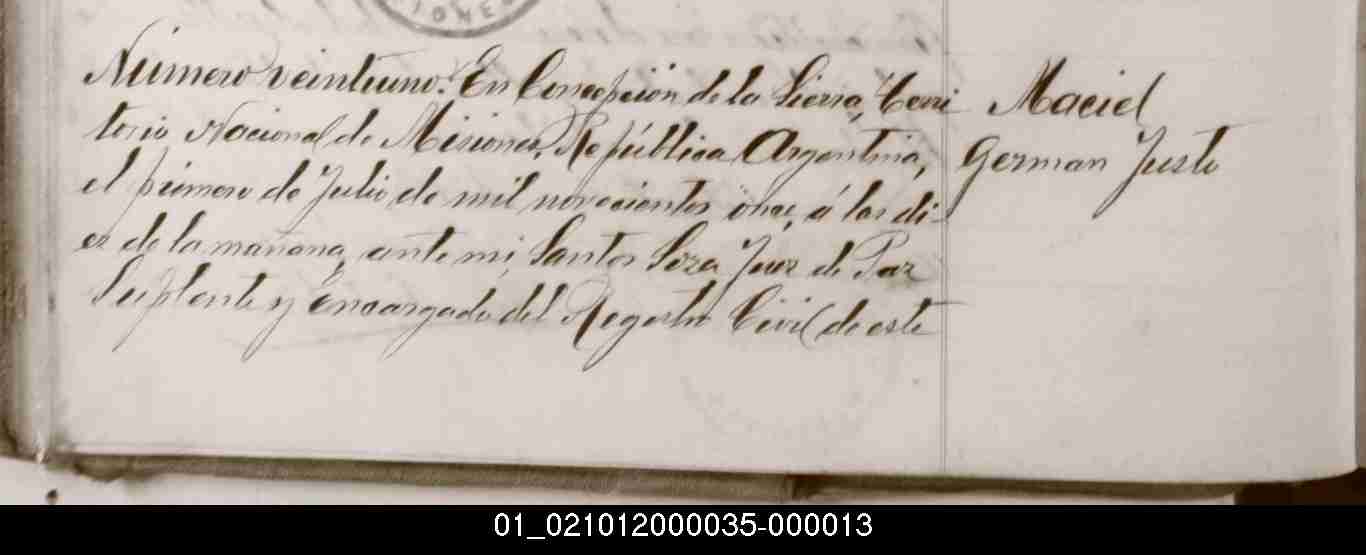 IONES
Número veintiuno. En Concepción de la Sierra, Terri
torio Nacional de Misiones, República Argentina,
el primero de Julio de mil novecientos once, á las di-
ez de la mañana, ante mi, Santos Soza Juez de Paz
Suplente y encargado del Registro Civil de este
Maciel
German Justo
01_021012000035-000013